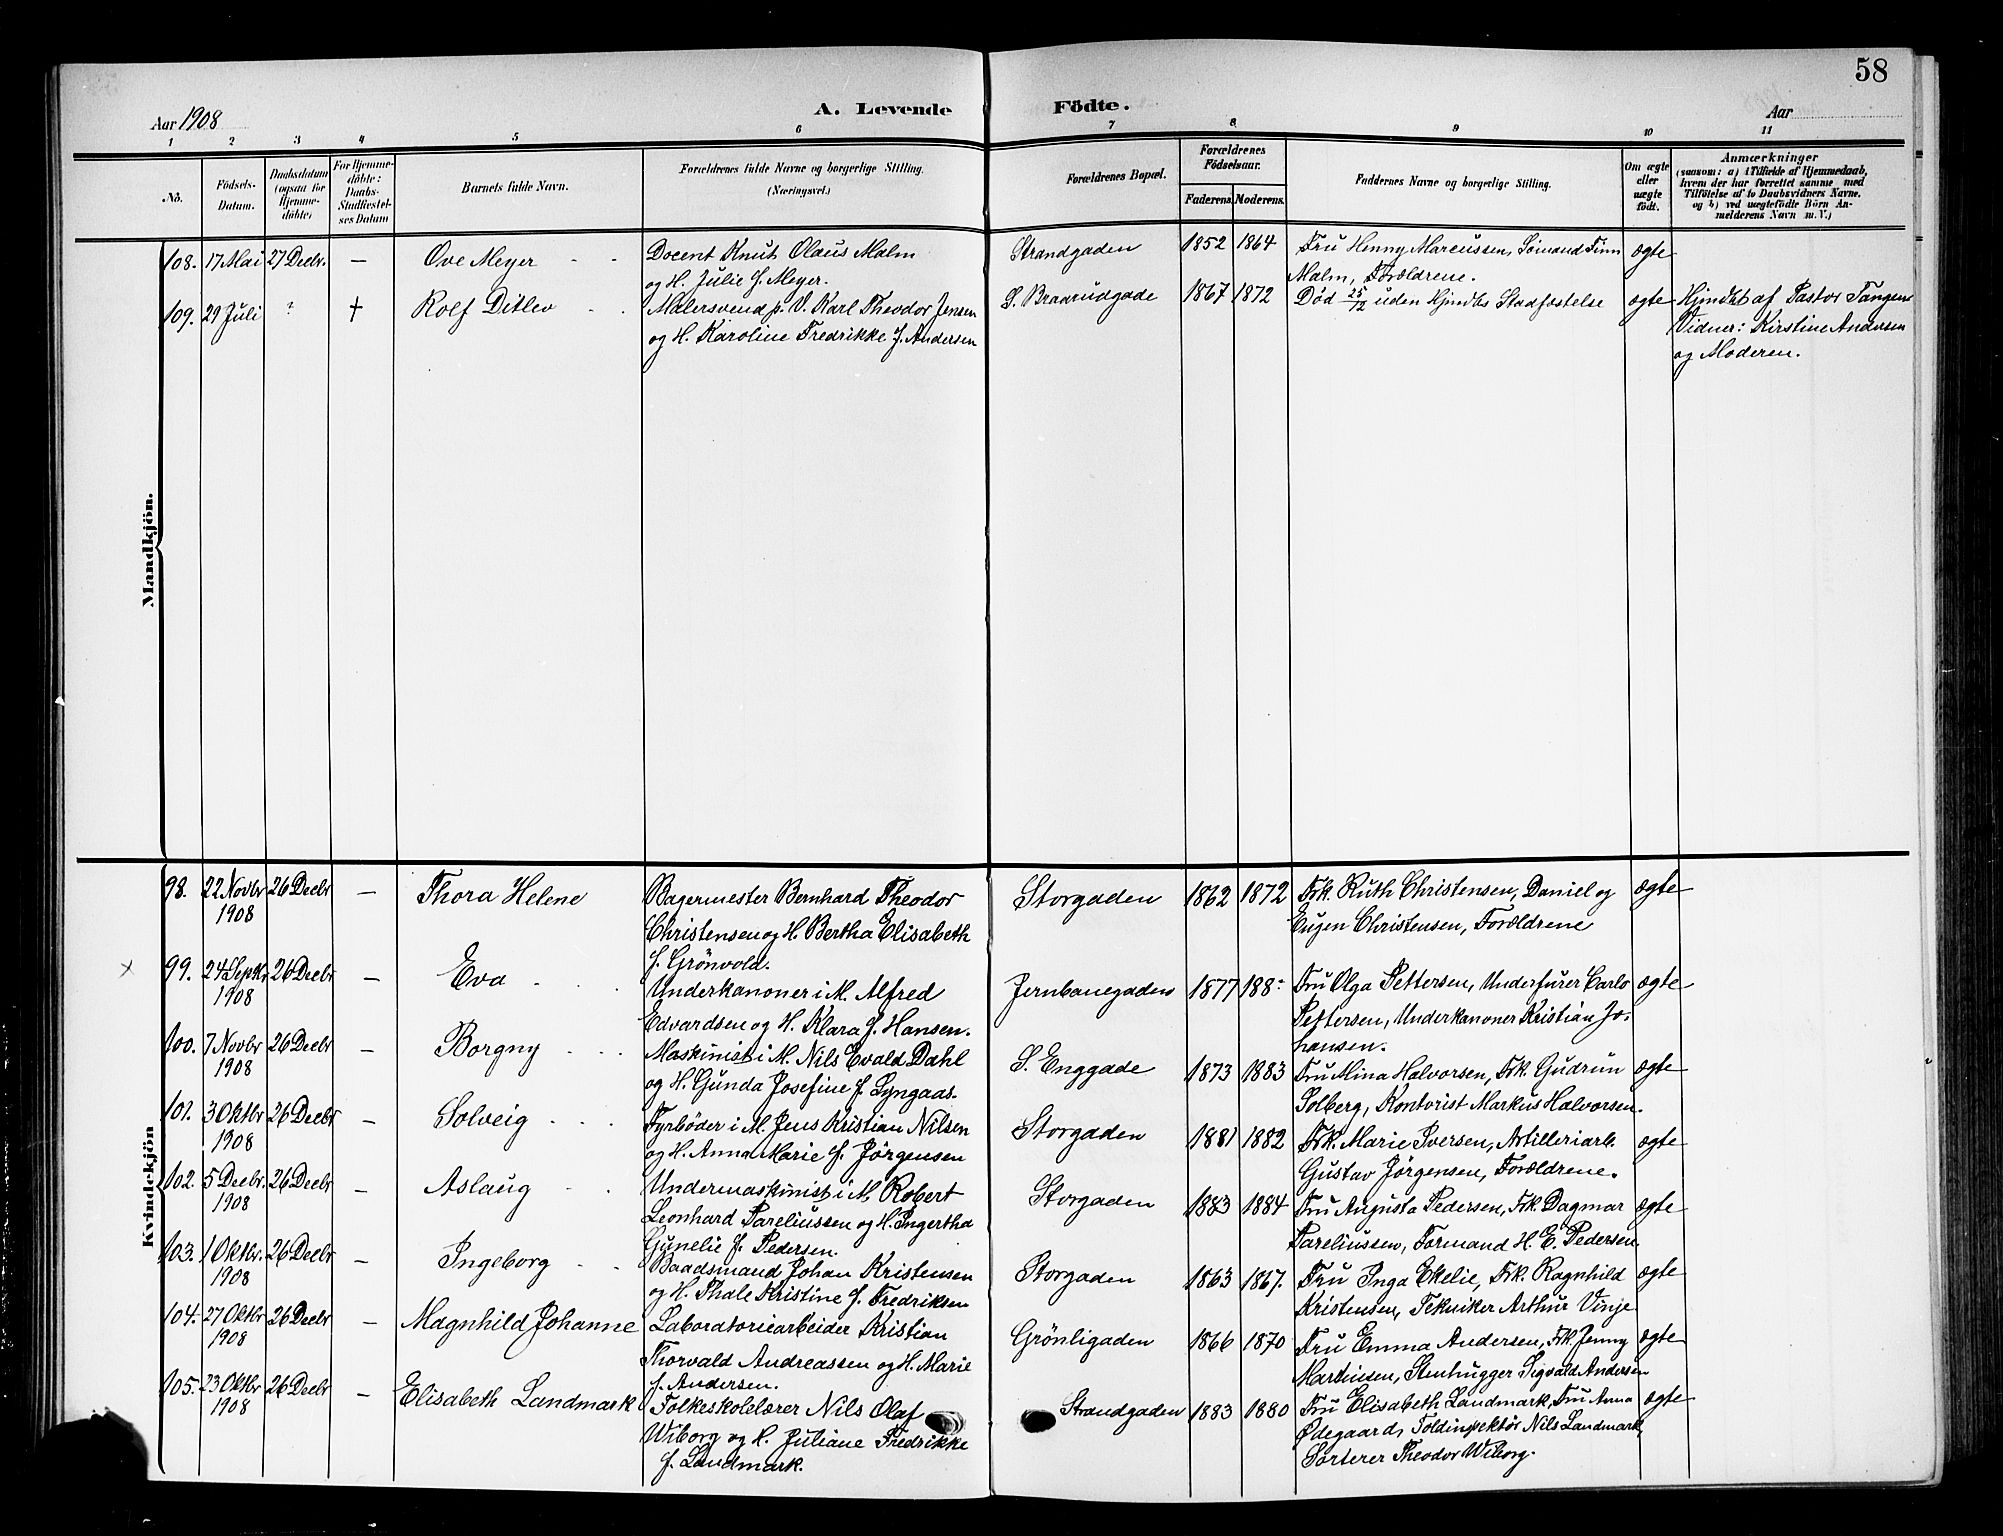 58
Aar 1908 A. Levende Födte. Aar
1 2 3 4 5 6 7 8 9 10 11
No. Födsels-Datum. Daabsdatum (ogsaa for Hjemme-döbte) For Hjemme-döbte: Daabs-Stadfæstel-ses Datum Barnets fulde Navn. Forældrenes fulde Navne og borgerlige Stilling. (Næringsvei.) Forældrenes Bopæl. Forældrenes Födselsaar. Faderens. Moderens. Faddernes Navne og borgerlige Stilling. Om ægte eller uægte födt. Anmærkninger (saasom: a) i Tilfælde af Hjemmedaab, hvem der har forrettet samme med Tilföielse af to Daabsvidners Navne. og b) ved uægtefödte Börn An-melderens Navn m. V.)
Mandkjön.
108. 17 Mai 27 Decbr. — Ove Meyer - - Docent Knut Olaus Malm Strandgaden 1852 1864 Fru Henny Marcussen, Sömand Finn ægte
og H. Julie f. Meyer. Malm, Forældrene.
109. 29 Juli ? † Rolf Ditlev - - Malersvend p. V. Karl Theodor Jensen S. Braarudgade 1867 1872 Död 25/12 uden Hjmdbs Stadfestelse ægte Hjmdbt af Pastor Tangen
og H. Karoline Fredrikke f. Andersen Vidner: Kirstine Andersen
og Moderen.
Kvindekjön
98. 22 Novbr 26 Decbr — Thora Helene Bagermester Bernhard Theodor Storgaden 1862 1872 Frk. Ruth Christensen, Daniel og ægte
1908 Christensen og H. Bertha Elisabeth Eugen Christensen, Forældrene
f. Grönvold.
99. 24 Septbr 26 Decbr — Eva - - - Underkanoner i M. Alfred Jernbanegaden 1877 188- Fru Olga Pettersen, Underfurer Carlo ægte
1908 Edvardsen og H. Klara f. Hansen. Pettersen, Underkanoner Kristian Jo-
hansen.
100. 7 Novbr 26 Decbr — Borgny - - - Maskinist i M. Nils Evald Dahl S. Enggade 1873 1883 Fru Mina Halvorsen, Frk. Gudrun ægte
1908 og H. Gunda Josefine f. Lyngaas. Solberg, Kontorist Markus Halvorsen.
101. 3 Oktbr 26 Decbr — Solveig - - - Fyrböder i M. Jens Kristian Nilsen Storgaden 1881 1882 Frk. Marie Iversen, Artilleriarb. ægte
1908 og H. Anna Marie f. Jørgensen Gustav Jørgensen, Forældrene.
102. 5 Decbr. 26 Decbr — Aslaug - - Undermaskinist i M. Robert Storgaden 1883 1884 Fru Augusta Pedersen, Frk. Dagmar ægte
1908 Leonhard Pareliussen og H. Ingertha Pareliussen, Formand H. E. Pedersen
Gunelie f. Pedersen.
103. 1 Oktbr. 26 Decbr — Ingeborg - - Baadsmand Johan Kristensen Storgaden 1863 1867. Fru Inga Ekelie, Frk. Ragnhild ægte
1908 og H. Thale Kristine f. Fredriksen Kristensen, Tekniker Arthur Vinje
104. 27 Oktbr 26 Decbr — Magnhild Johanne Laboratoriearbeider Kristian Grönligaden 1866 1870 Fru Emma Andersen, Frk. Jenny ægte
1908 Thorvald Andreassen og H. Marie Martinsen, Stenhugger Sigvald Andersen
f. Andersen.
105. 23 Oktbr 26 Decbr — Elisabeth Landmark Folkeskolelærer Nils Olaf Strandgaden 1883 1880 Fru Elisabeth Landmark, Fru Anna ægte
1908 Wiborg og H. Juliane Fredrikke Ødegaards, Toldinspektör Nils Landmark,
f. Landmark. Sorterer Theodor Wiborg.